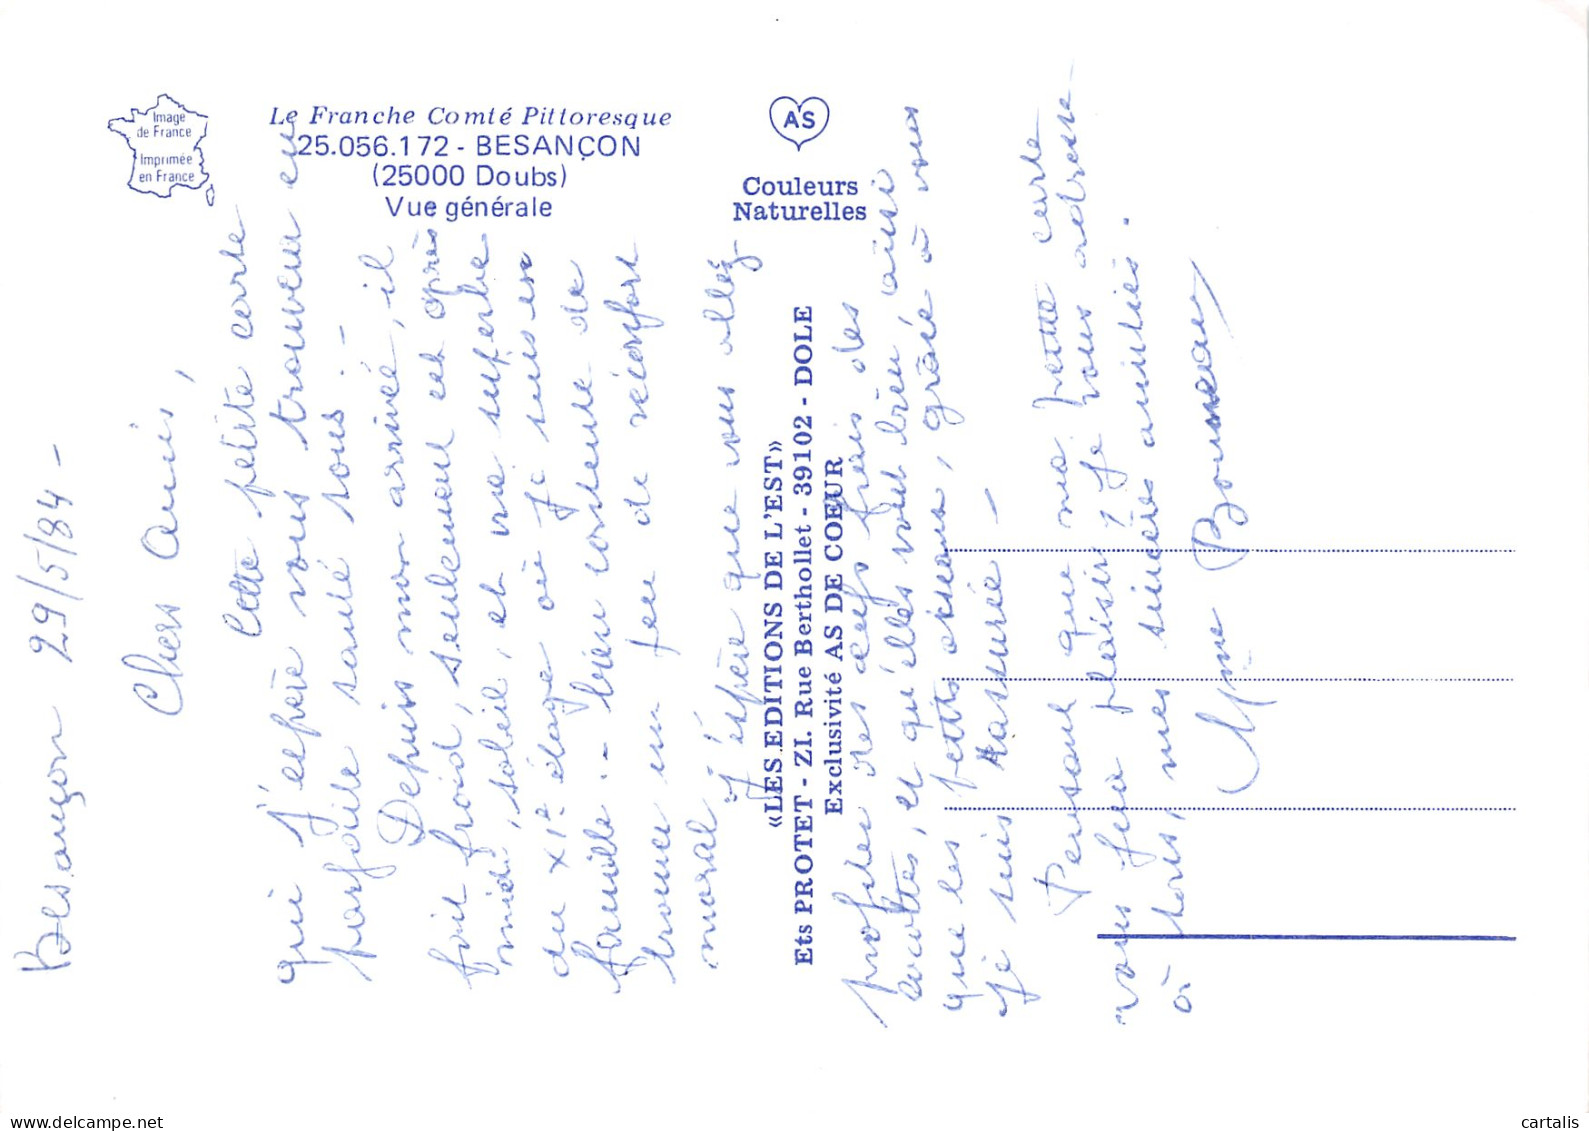 Image
de France
Imprimée
en France
Le Franche Comté Pittoresque
25.056.172 - BESANÇON
(25000 Doubs)
Vue générale
AS
Couleurs
Naturelles
«LES EDITIONS DE L'EST»
Ets PROTET - ZI. Rue Berthollet - 39102 - DOLE
Exclusivité AS DE COEUR
Besançon 29/5/84 -
Chers amis,
Cette petite carte
qui j'espère vous trouvera en
parfaite santé tous -
Depuis mon arrivée, il
fait froid, seulement cet après
midi, soleil, et vue superbe
du XIe étage où je suis en
famille - bien contente de
trouver un peu de réconfort
moral - j'espère que vous allez
profiter des œufs frais des
cocottes, et qu'elles vont bien ainsi
que les petits oiseaux, grâce à vous
je suis rassurée -
Pensant que ma petite carte
vous fera plaisir, je vous adresse
à tous, mes sincères amitiés.
Mme
cartalis